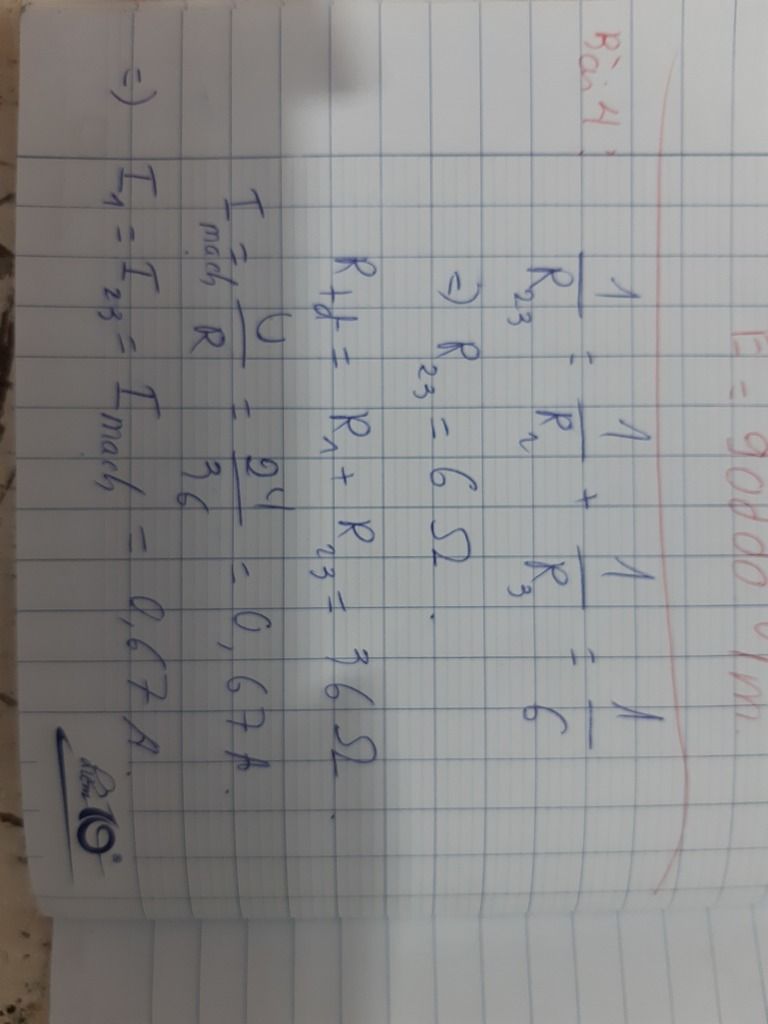 E = 90000 V/m.
Bài 4:
1/R23 = 1/R2 + 1/R3 = 1/6
=) R23 = 6 Ω.
Rtđ = R1 + R23 = 36 Ω.
I mạch = U/R = 24/36 = 0,67 A.
=) I1 = I23 = I mạch = 0,67 A.
10